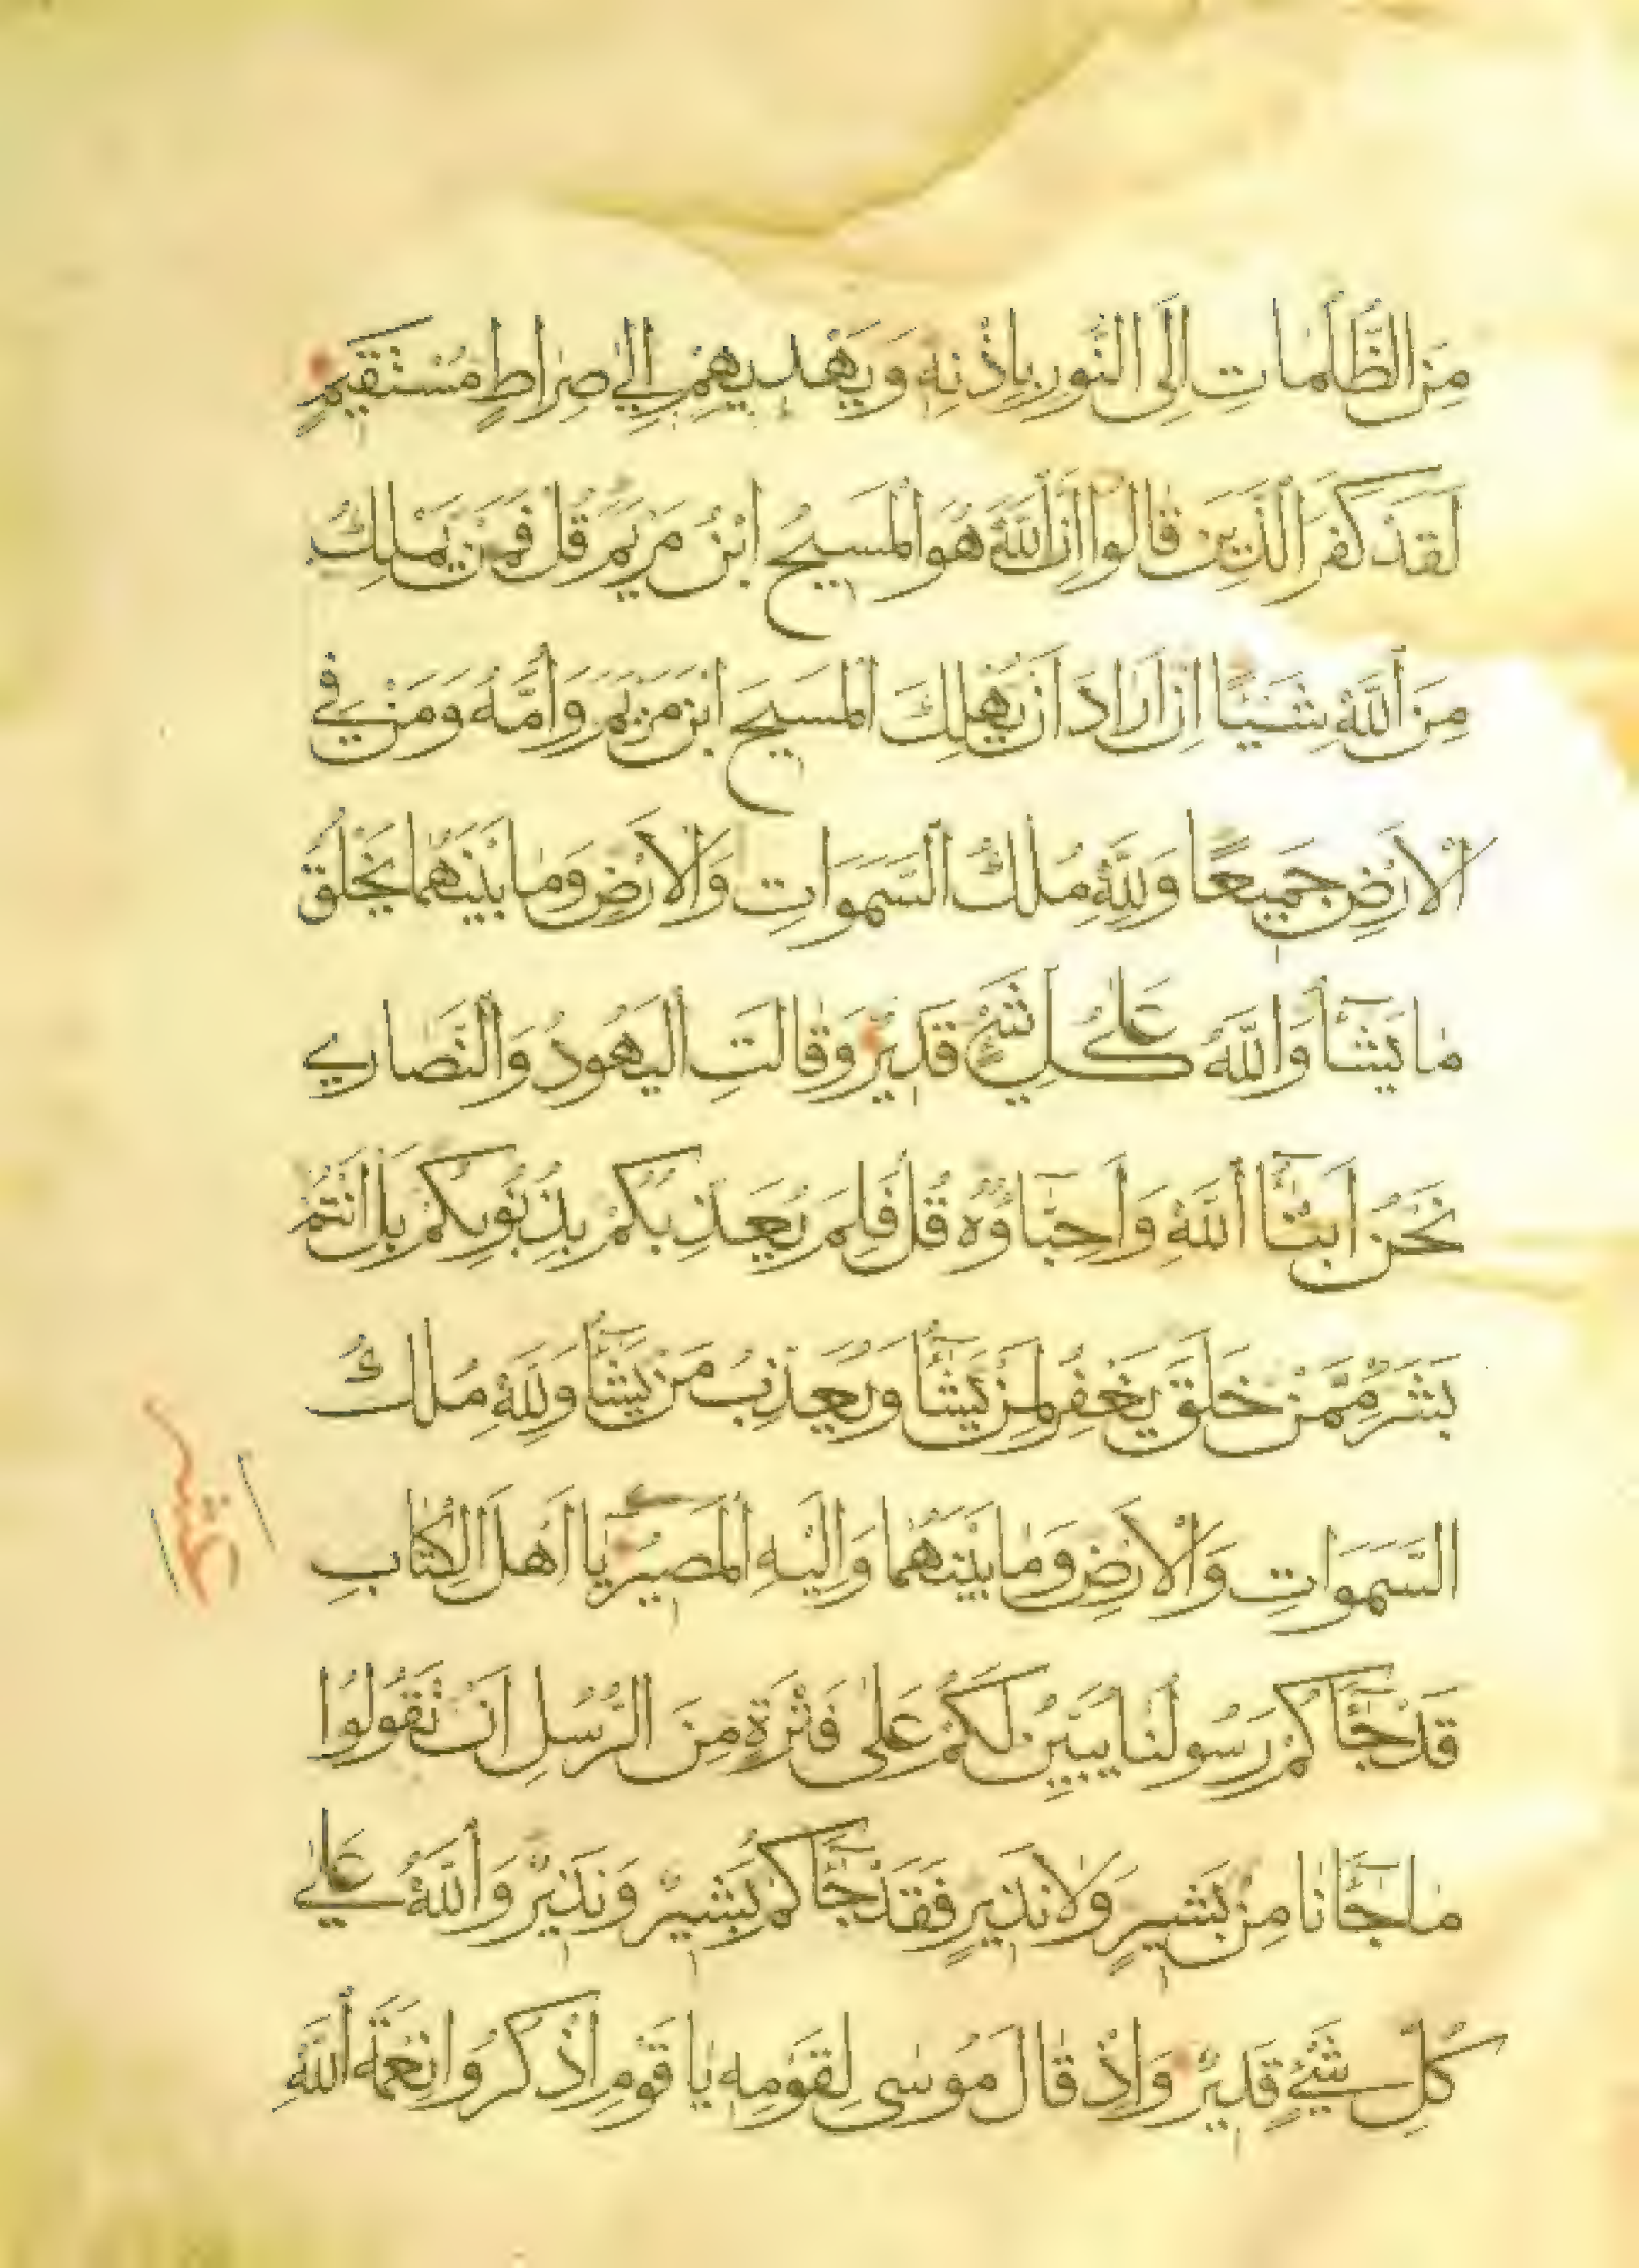 مِنَ الظُّلُمَاتِ اِلَى النُّورِ بِاِذْنِهِ وَيَهْدِيهِمْ اِلىٰ صِرَاطٍ مُسْتَقِيمٍ
لَقَدْ كَفَرَ الَّذِينَ قَالُوا اِنَّ اللّٰهَ هُوَ الْمَسِيحُ ابْنُ مَرْيَمَ قُلْ فَمَنْ يَمْلِكُ
مِنَ اللّٰهِ شَيْئًا اِنْ اَرَادَ اَنْ يُهْلِكَ الْمَسِيحَ ابْنَ مَرْيَمَ وَاُمَّهُ وَمَنْ فِي
الْاَرْضِ جَمِيعًا وَلِلّٰهِ مُلْكُ السَّمٰوَاتِ وَالْاَرْضِ وَمَا بَيْنَهُمَا يَخْلُقُ
مَا يَشَآءُ وَاللّٰهُ عَلىٰ كُلِّ شَيْءٍ قَدِيرٌ وَقَالَتِ الْيَهُودُ وَالنَّصَارىٰ
نَحْنُ اَبْنَآءُ اللّٰهِ وَاَحِبَّاؤُهُ قُلْ فَلِمَ يُعَذِّبُكُمْ بِذُنُوبِكُمْ بَلْ اَنْتُمْ
بَشَرٌ مِمَّنْ خَلَقَ يَغْفِرُ لِمَنْ يَشَآءُ وَيُعَذِّبُ مَنْ يَشَآءُ وَلِلّٰهِ مُلْكُ
السَّمٰوَاتِ وَالْاَرْضِ وَمَا بَيْنَهُمَا وَاِلَيْهِ الْمَصِيرُ يَا اَهْلَ الْكِتَابِ
قَدْ جَآءَكُمْ رَسُولُنَا يُبَيِّنُ لَكُمْ عَلىٰ فَتْرَةٍ مِنَ الرُّسُلِ اَنْ تَقُولُوا
مَا جَآءَنَا مِنْ بَشِيرٍ وَلَا نَذِيرٍ فَقَدْ جَآءَكُمْ بَشِيرٌ وَنَذِيرٌ وَاللّٰهُ عَلىٰ
كُلِّ شَيْءٍ قَدِيرٌ وَاِذْ قَالَ مُوسىٰ لِقَوْمِهِ يَا قَوْمِ اذْكُرُوا نِعْمَةَ اللّٰهِ